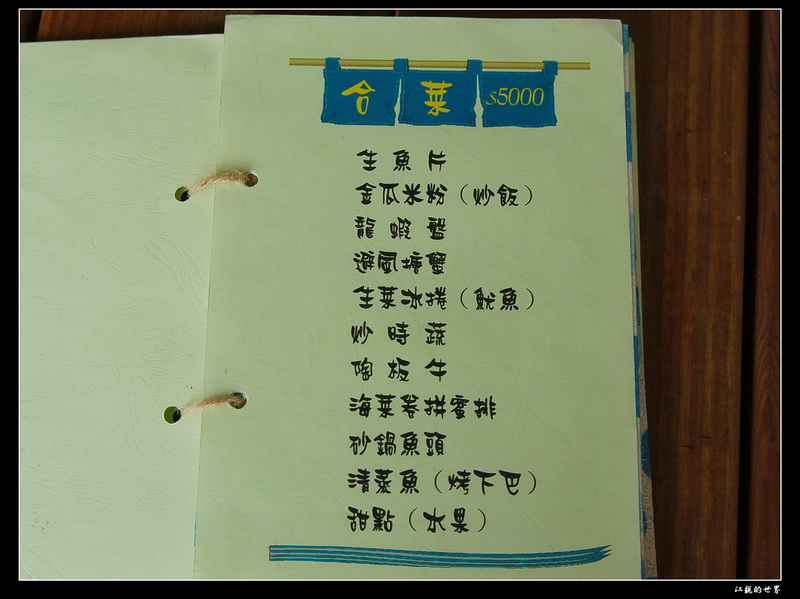 合菜 $5000
生魚片
金瓜米粉（炒飯）
龍蝦盤
避風塘蟹
生菜冰捲（魷魚）
炒時蔬
陶板牛
海菜卷拼蜜排
砂鍋魚頭
清蒸魚（烤下巴）
甜點（水果）
的世界